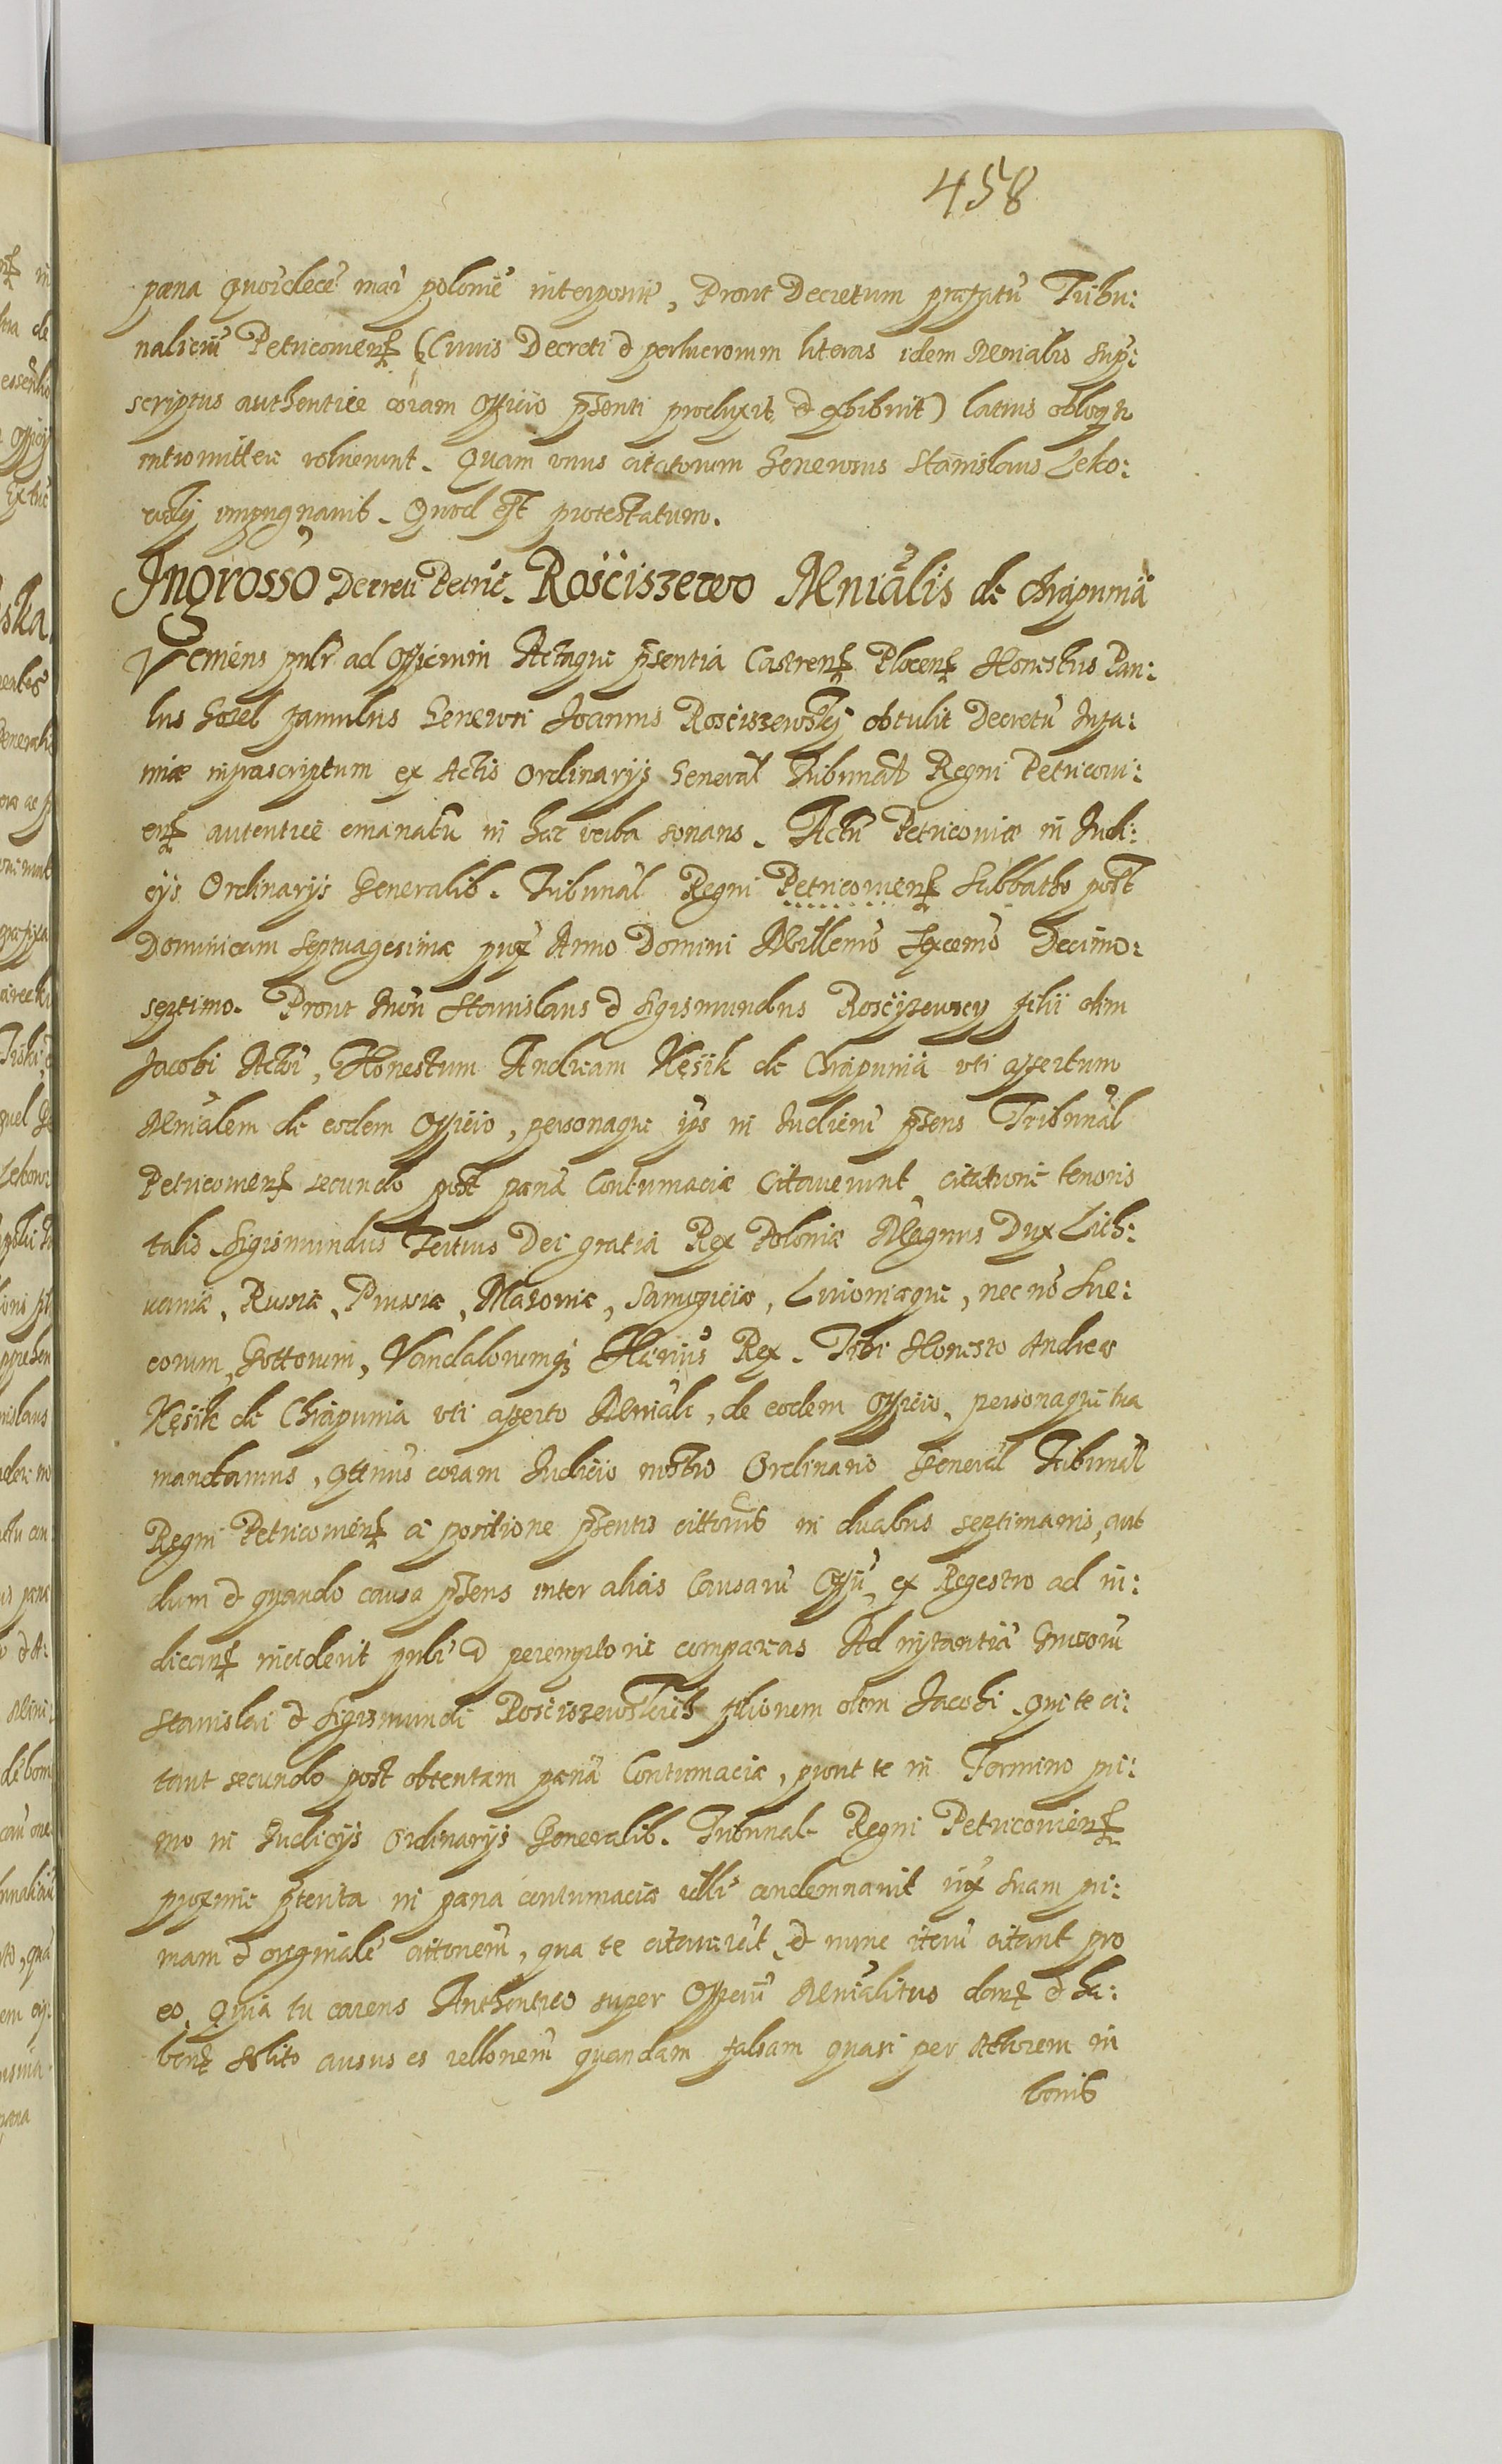 458
pæna quoidecē mar polonic interposit, Prout Decretum præfatū Tribu:
naliciū Petricoviens (Cuius Decreti & perlucrorum literas idem Mnialis sup:
scriptus authentice coram Officio pnti produxit & exhibuit) latius obloqr
intromittere voluerunt. Quam unus citatorum Generosus Stanislaus Leko:
wskij impugnavit. Quod est protestatum.
Ingrosso Decreti Petric. Rosciszewo Mnialis de Chrapunia
Veniens pnlr ad Officium Actaque pnsentia Castrens Plocens Honestus Pau:
lus Gozel famulus Generosi Joannis Rosciszewskij obtulit Decretū Infa:
miæ infrascriptum ex Actis Ordinarijs General Tribunal Regni Petricoui:
ens autentice emanatū in hæc verba sonans. Actū Petricoviæ in Judi:
cijs Ordinarijs Generalib. Tribunal Regni Petricoviens Sabbatho post
Dominicam Septuagesimæ prox Anno Domini Millemo Sexcemo Decimo:
septimo. Prout Gnosi Stanislaus & Sigismundus Roscijzewscy filii olim
Jacobi Actor, Honestum Andream Kęsik de Chrapunia uti assertum
Mnialem de eodem Officio, personaque ips in Judiciū psens Tribunal
Petricoviens secundo post pænā Contumaciæ Citaverunt, citatione tenoris
talis. Sigismundus Tertius Dei gratia Rex Poloniæ Magnus Dux Lith:
uaniæ, Russiæ, Prussiæ, Masoviæ, Samogiciæ, Livoniæque, nec nō Sue:
corum, Gottorum, Vandalorumq Hærius Rex. Tibi Honesto Andreæ
Kęsik de Chrapunia uti asserto Mniali, de eodem Officio, personaque tua
mandamus, qttenus coram Judicio nostro Ordinario General Tribunal
Regni Petricoviens a positione pnsentis cittonis in duabus septimanis, aut
dum & quando causa psens inter alias Causarū Offii, ex Regestro ad iu:
dicans inciderit pnlr & peremptorie compareas Ad instantiā Gnosorū
Stanislai & Sigismundi Rosciszewskich filiorum olim Jacobi. qui te ci:
tant secundo post obtentam pænā Contumaciæ, prout te in Termino pri:
mo in Judicijs Ordinarijs Generalib. Tribunal Regni Petricoviens
proxime pterita in pæna contumaciæ illis condemnavit iux suam pri:
mam & originalē cittonem, qua te citaverūt & nunc iterū citant pro
eo. Quia tu carens Authentico super Officiū Mnialitus dans & ha:
bens solito ausus es rellonem quandam falsam quasi per Actorem in
bonis